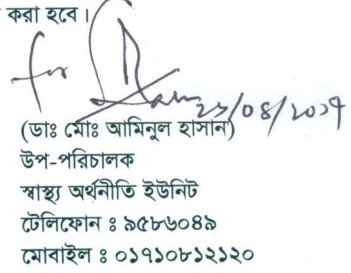 করা হবে।
for
২১/০৪/২০১৭
(ডাঃ মোঃ আমিনুল হাসান)
উপ-পরিচালক
স্বাস্থ্য অর্থনীতি ইউনিট
টেলিফোন ঃ ৯৫৮৬০৪৯
মোবাইল ঃ ০১৭১০৮১২১২০